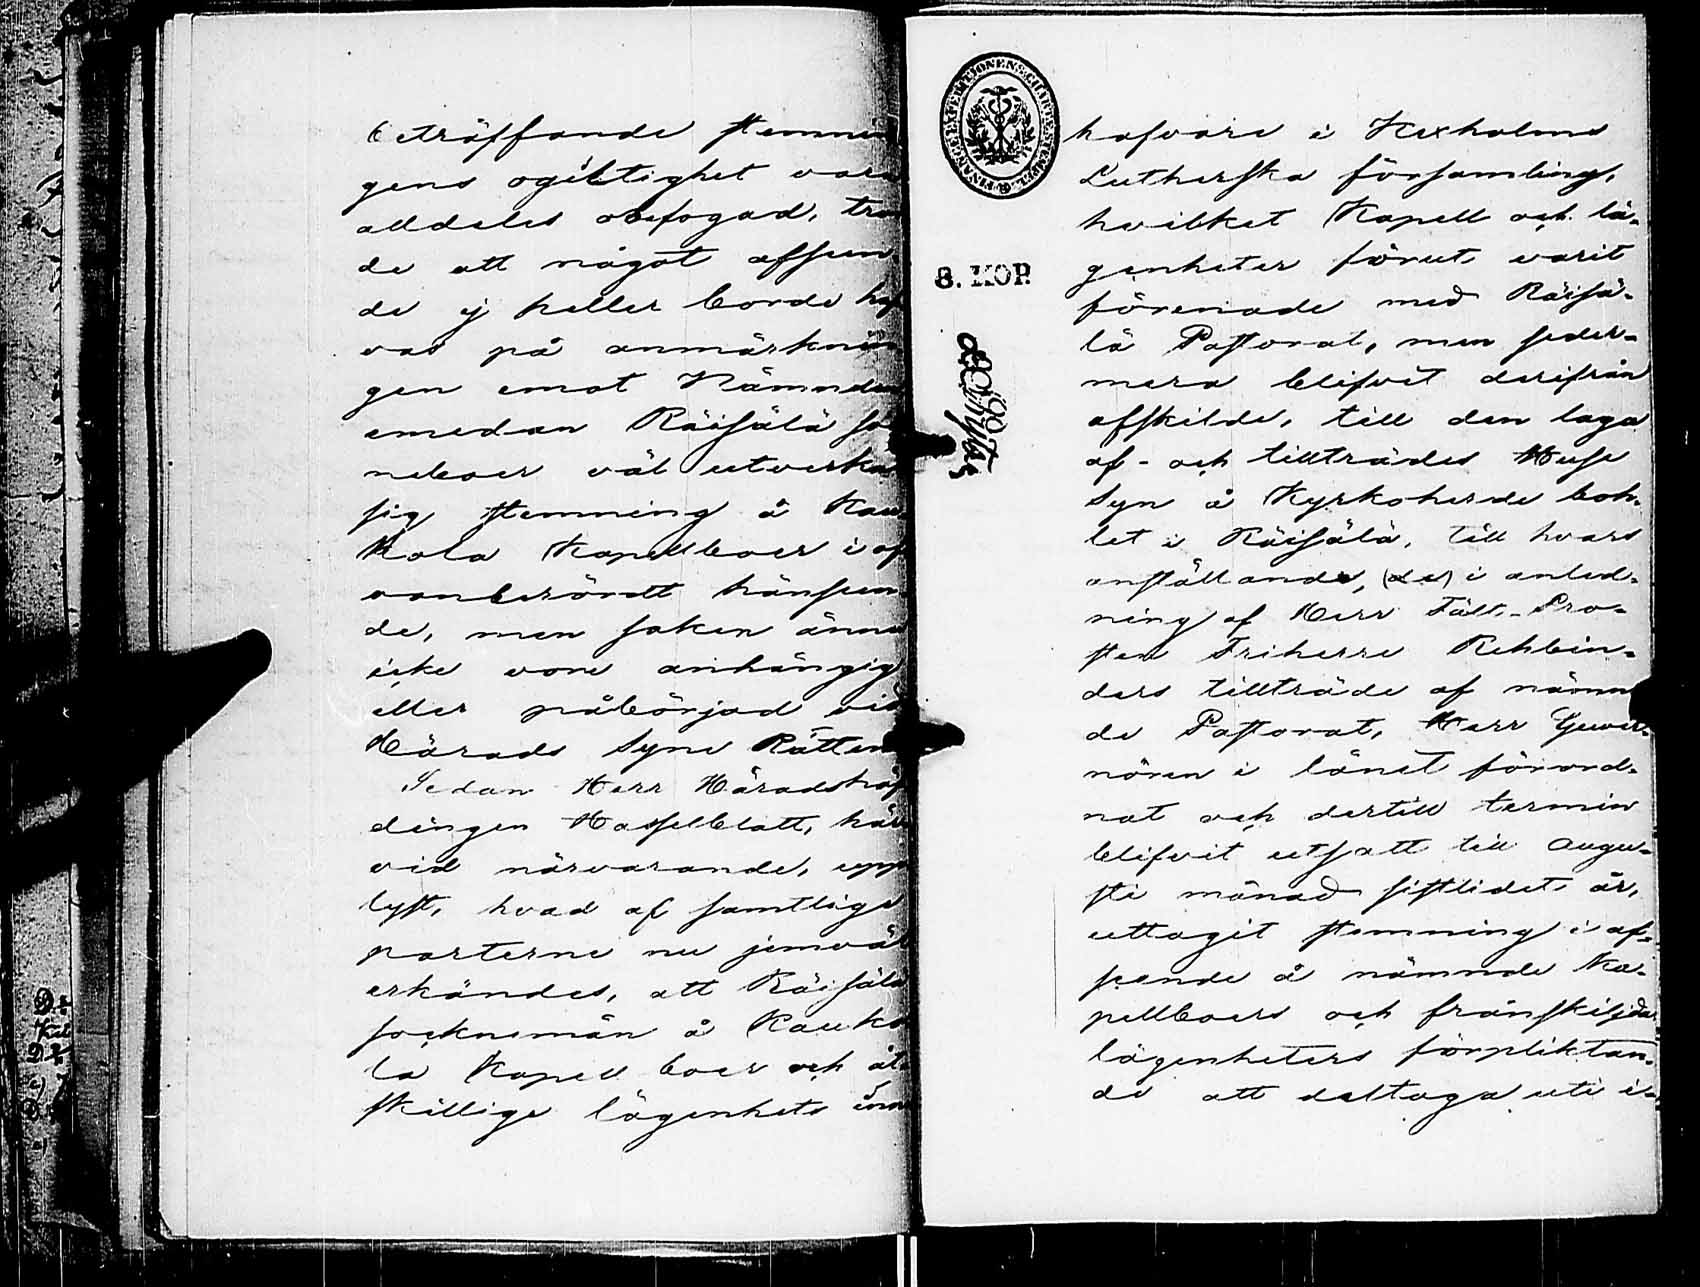 beträffande stemnin
gens ogiltighet vara
alldeles obefogad, tro
de att något afseen
de ej heller borde haf
vas på anmärknin
gen emot Nämnden
emedan Räisälä soc
neboer väl utverkat
sig stemning å Kau
kola Kapellboer i of
vanberördt hänseen
de, men saken ännu
icke vore anhängig
eller påbörjad vid
Härads Syne Rätten
Sedan Herr Häradshöf
dingen Hasselblatt, här
vid närvarande, upp
lyst, hvad af samtlige
parterne nu jemväl
erkändes, att Räisälä
socknemän å Kauko
la Kapell boer och åt
skillige lägenhets inne
FINANCE EXPEDITIONENS CHARTÆ STEMPEL
8. KOP.
hafvare i Kexholms
Lutherska församling,
hvilket Kapell och lä-
genheter förut varit
förenade med Räisä-
lä Pastorat, men seder-
mera blifvit derifrån
afskilde, till den laga
af- och tillträdes Huse
Syn å Kyrkoherde bol-
let i Räisälä, till hvars
anställande, (de) i anled-
ning af Herr Fält-Pro-
sten Friherre Rehbin-
ders tillträde af nämn
de Pastorat, Herr Guver-
nören i länet förord-
nat och dertill termin
blifvit utsatt till Augu-
sti månad sistlidet år,
uttagit stemning i af-
seende å nämnde Ka-
pellboers och frånskiljda
lägenheters förpliktan-
de att deltaga uti i-